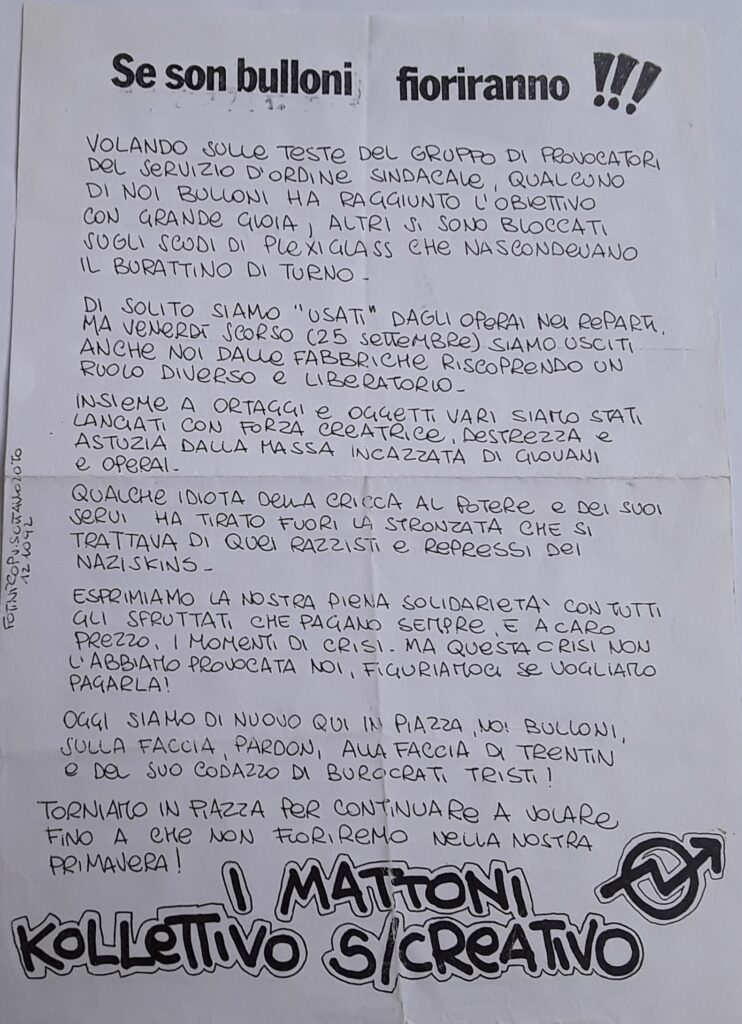 Se son bulloni fioriranno !!!
VOLANDO SULLE TESTE DEL GRUPPO DI PROVOCATORI
DEL SERVIZIO D'ORDINE SINDACALE, QUALCUNO
DI NOI BULLONI HA RAGGIUNTO L'OBIETTIVO
CON GRANDE GIOIA, ALTRI SI SONO BLOCCATI
SUGLI SCUDI DI PLEXIGLASS CHE NASCONDEVANO
IL BURATTINO DI TURNO -
DI SOLITO SIAMO "USATI" DAGLI OPERAI NEI REPARTI,
MA VENERDÌ SCORSO (25 SETTEMBRE) SIAMO USCITI
ANCHE NOI DALLE FABBRICHE RISCOPRENDO UN
RUOLO DIVERSO E LIBERATORIO -
INSIEME A ORTAGGI E OGGETTI VARI SIAMO STATI
LANCIATI CON FORZA CREATRICE, DESTREZZA E
ASTUZIA DALLA MASSA INCAZZATA DI GIOVANI
E OPERAI -
QUALCHE IDIOTA DELLA CRICCA AL POTERE E DEI SUOI
SERVI HA TIRATO FUORI LA STRONZATA CHE SI
TRATTAVA DI QUEI RAZZISTI E REPRESSI DEI
NAZISKINS -
ESPRIMIAMO LA NOSTRA PIENA SOLIDARIETA' CON TUTTI
GLI SFRUTTATI CHE PAGANO SEMPRE, E A CARO
PREZZO, I MOMENTI DI CRISI - MA QUESTA CRISI NON
L'ABBIAMO PROVOCATA NOI, FIGURIAMOCI SE VOGLIAMO
PAGARLA!
OGGI SIAMO DI NUOVO QUI IN PIAZZA, NOI BULLONI,
SULLA FACCIA, PARDON, ALLA FACCIA DI TRENTIN
E DEL SUO CODAZZO DI BUROCRATI TRISTI!
TORNIAMO IN PIAZZA PER CONTINUARE A VOLARE
FINO A CHE NON FIORIREMO NELLA NOSTRA
PRIMAVERA!
I MATTONI
KOLLETTIVO S/CREATIVO
12.10.92